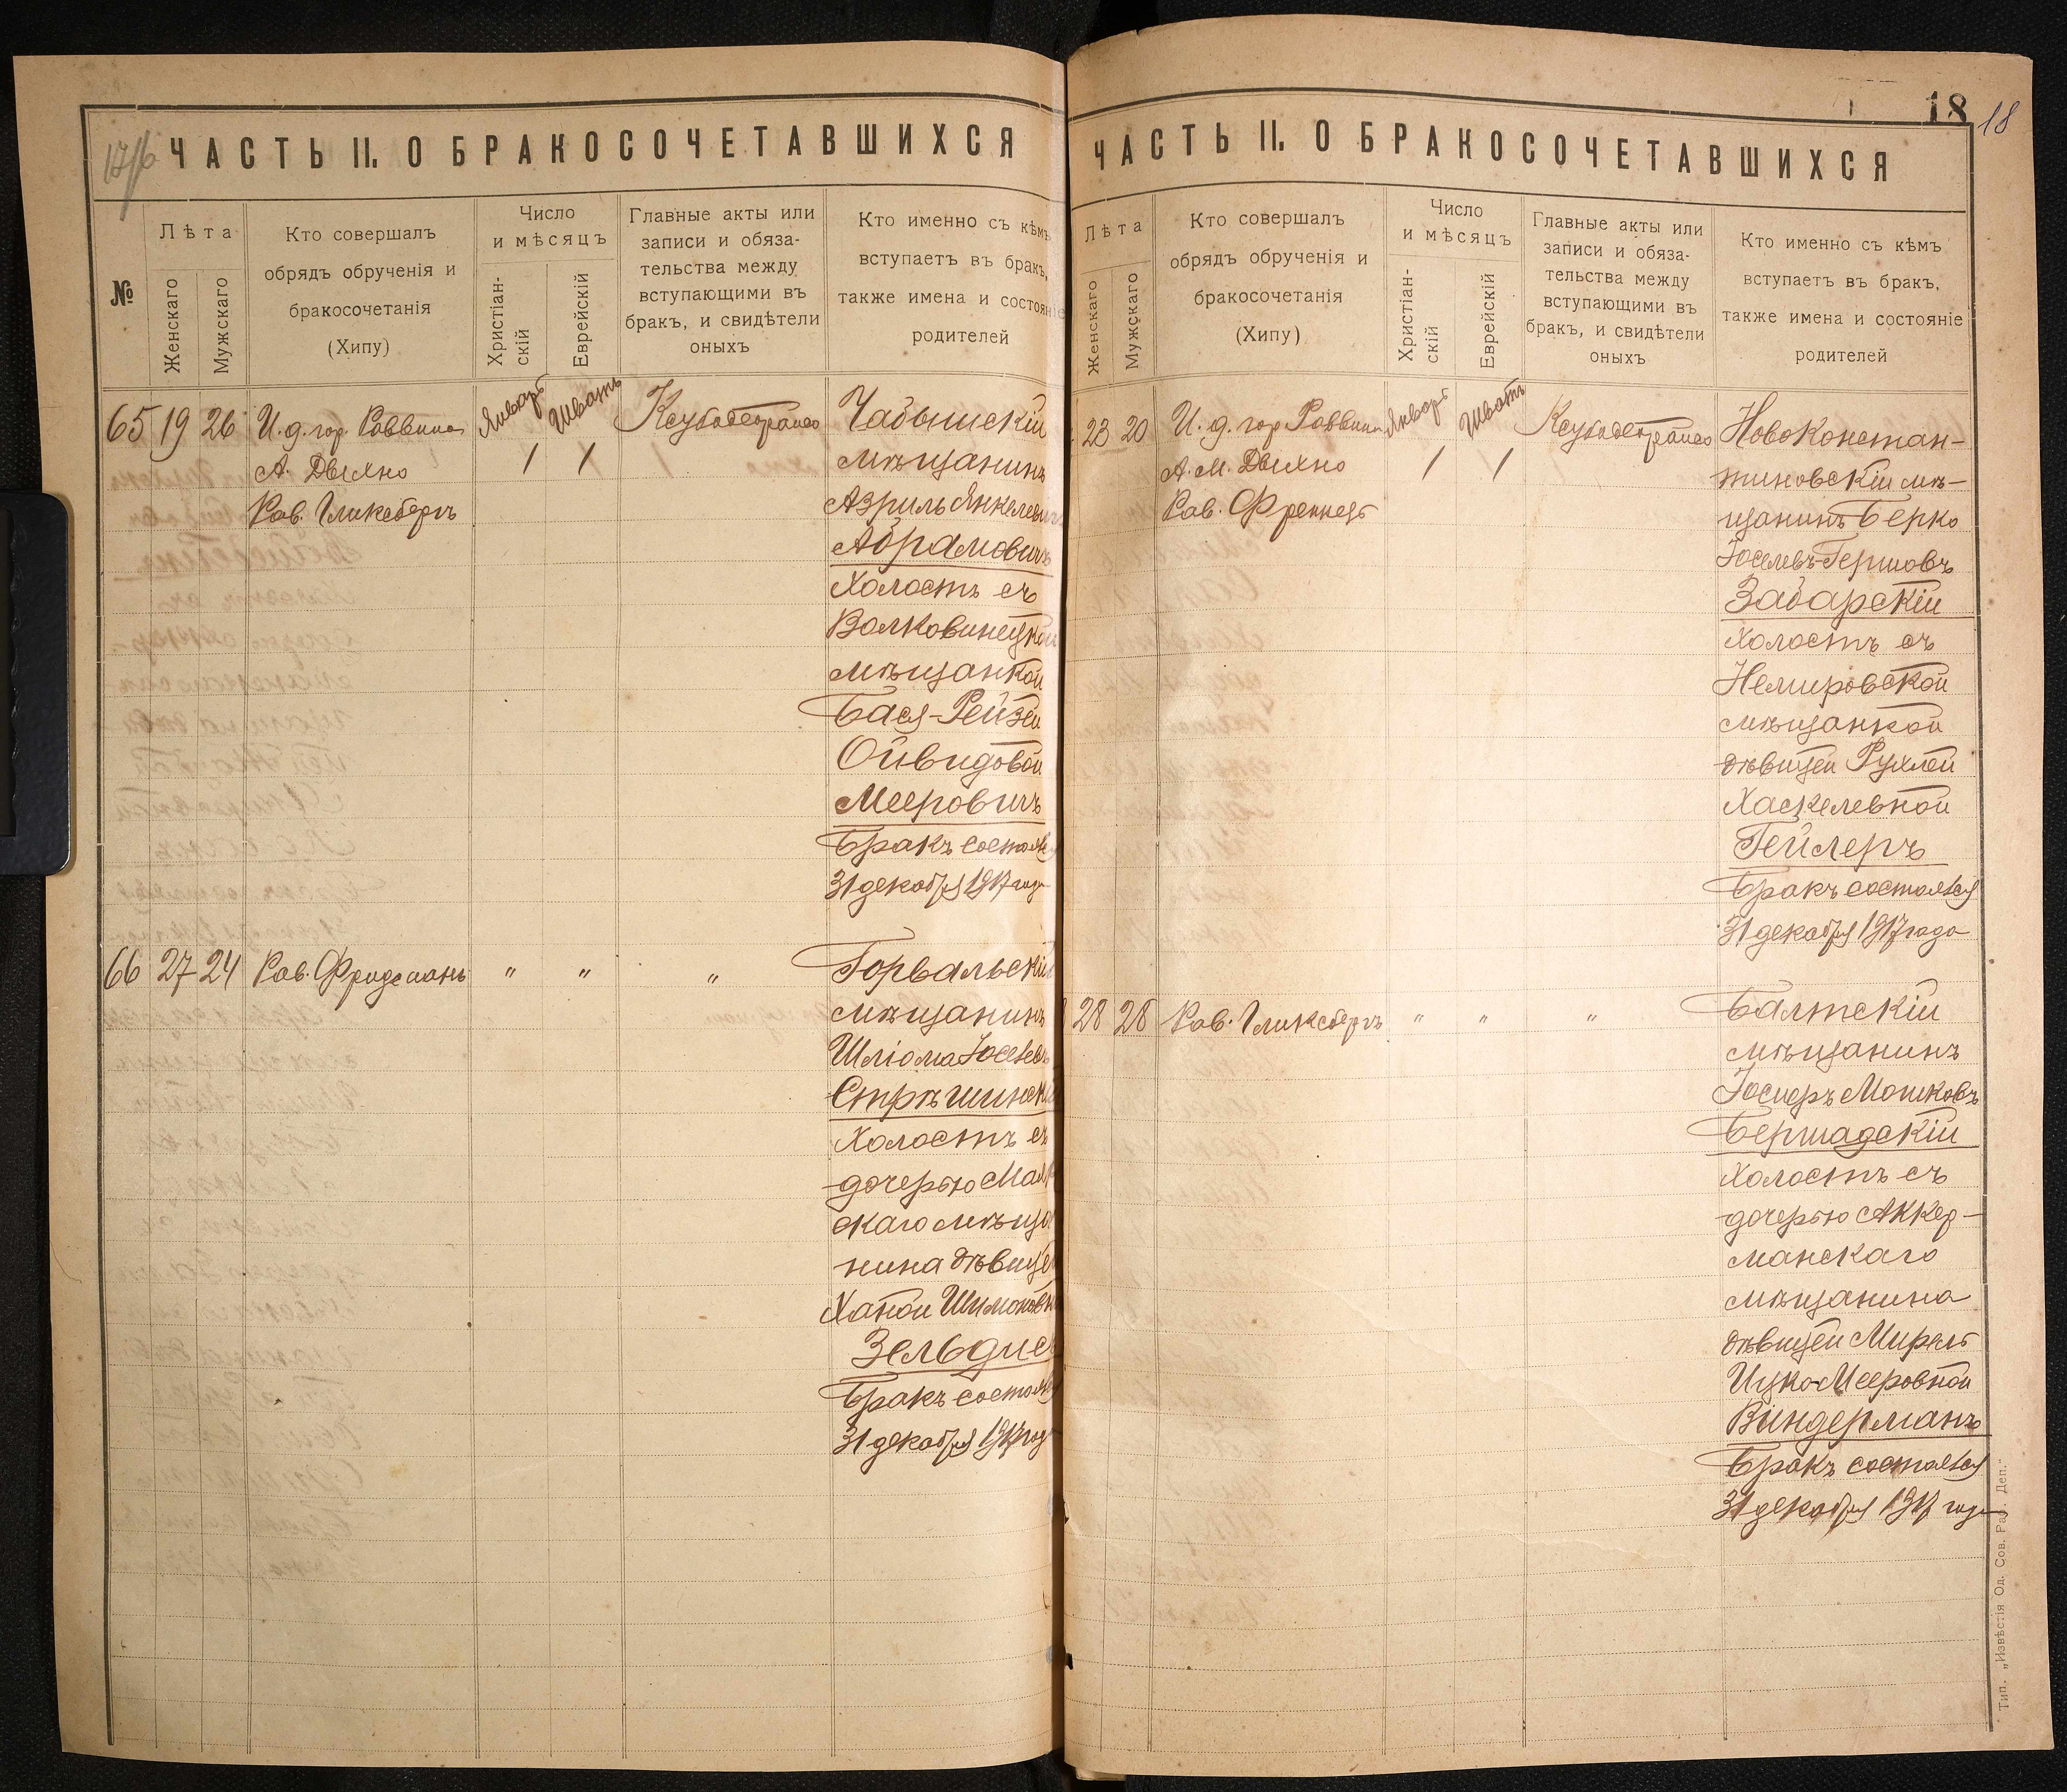 17/б
ЧАСТЬ II. О БРАКОСОЧЕТАВШИХСЯ
№
Лѣта
Женскаго
Мужскаго
Кто совершалъ
обрядъ обрученія и
бракосочетанія
(Хипу)
Число
и мѣсяцъ
Христіан-
скій
Еврейскій
Главные акты или
записи и обяза-
тельства между
вступающими въ
бракъ, и свидѣтели
оныхъ
Кто именно съ кѣмъ
вступаетъ въ бракъ,
также имена и состояніе
родителей
65 19 26 И. д. гор. Раввина Январь Шватъ
А. Двилно 1 1
Рав. Гликсбергъ
мѣщанинъ
Азриль Янкелевичъ
Абрамовичъ
Холостъ съ
Волковинецкой
мѣщанкой
Бася-Рейзей
Ойвидовой
Мееровичъ
Бракъ состоялся
31 декабря 1917 года
66 27 24 Рав. Фридманъ " " " Горвальскій
мѣщанинъ
Шліома Іоселевъ
Стрѣшинскій
Холостъ съ
дочерью
скаго мѣща
нина дѣвицей
Ханой Шимоновной
Зельдис
Бракъ состоялся
31 декабря 1917 года
18
18
ЧАСТЬ II. О БРАКОСОЧЕТАВШИХСЯ
Лѣта
Женскаго
Мужскаго
Кто совершалъ
обрядъ обрученія и
бракосочетанія
(Хипу)
Число
и мѣсяцъ
Христіан-
скій
Еврейскій
Главные акты или
записи и обяза-
тельства между
вступающими въ
бракъ, и свидѣтели
оныхъ
Кто именно съ кѣмъ
вступаетъ въ бракъ,
также имена и состояніе
родителей
23 20 И. д. гор. Раввина Январь Шватъ Новоконстан-
А. М. Двилно 1 1 тиновскій мѣ-
Рав. щанинъ Берко
Іоселевъ-Гершовъ
Забарскій
холостъ съ
Немировской
мѣщанкой
дѣвицей Рухлей
Хаскелевной
Гейлеръ
Бракъ состоялся
31 декабря 1917 года
28 28 Рав. Гликсбергъ " " " Балтскій
мѣщанинъ
Мошковъ
Бершадскій
холостъ съ
дочерью Аккер-
манскаго
мѣщанина
дѣвицей
Ицко-Мееровной
Виндерманъ
Бракъ состоялся
31 декабря 1917 года
Тип. „Извѣстія Од. Сов. Раб. Деп."